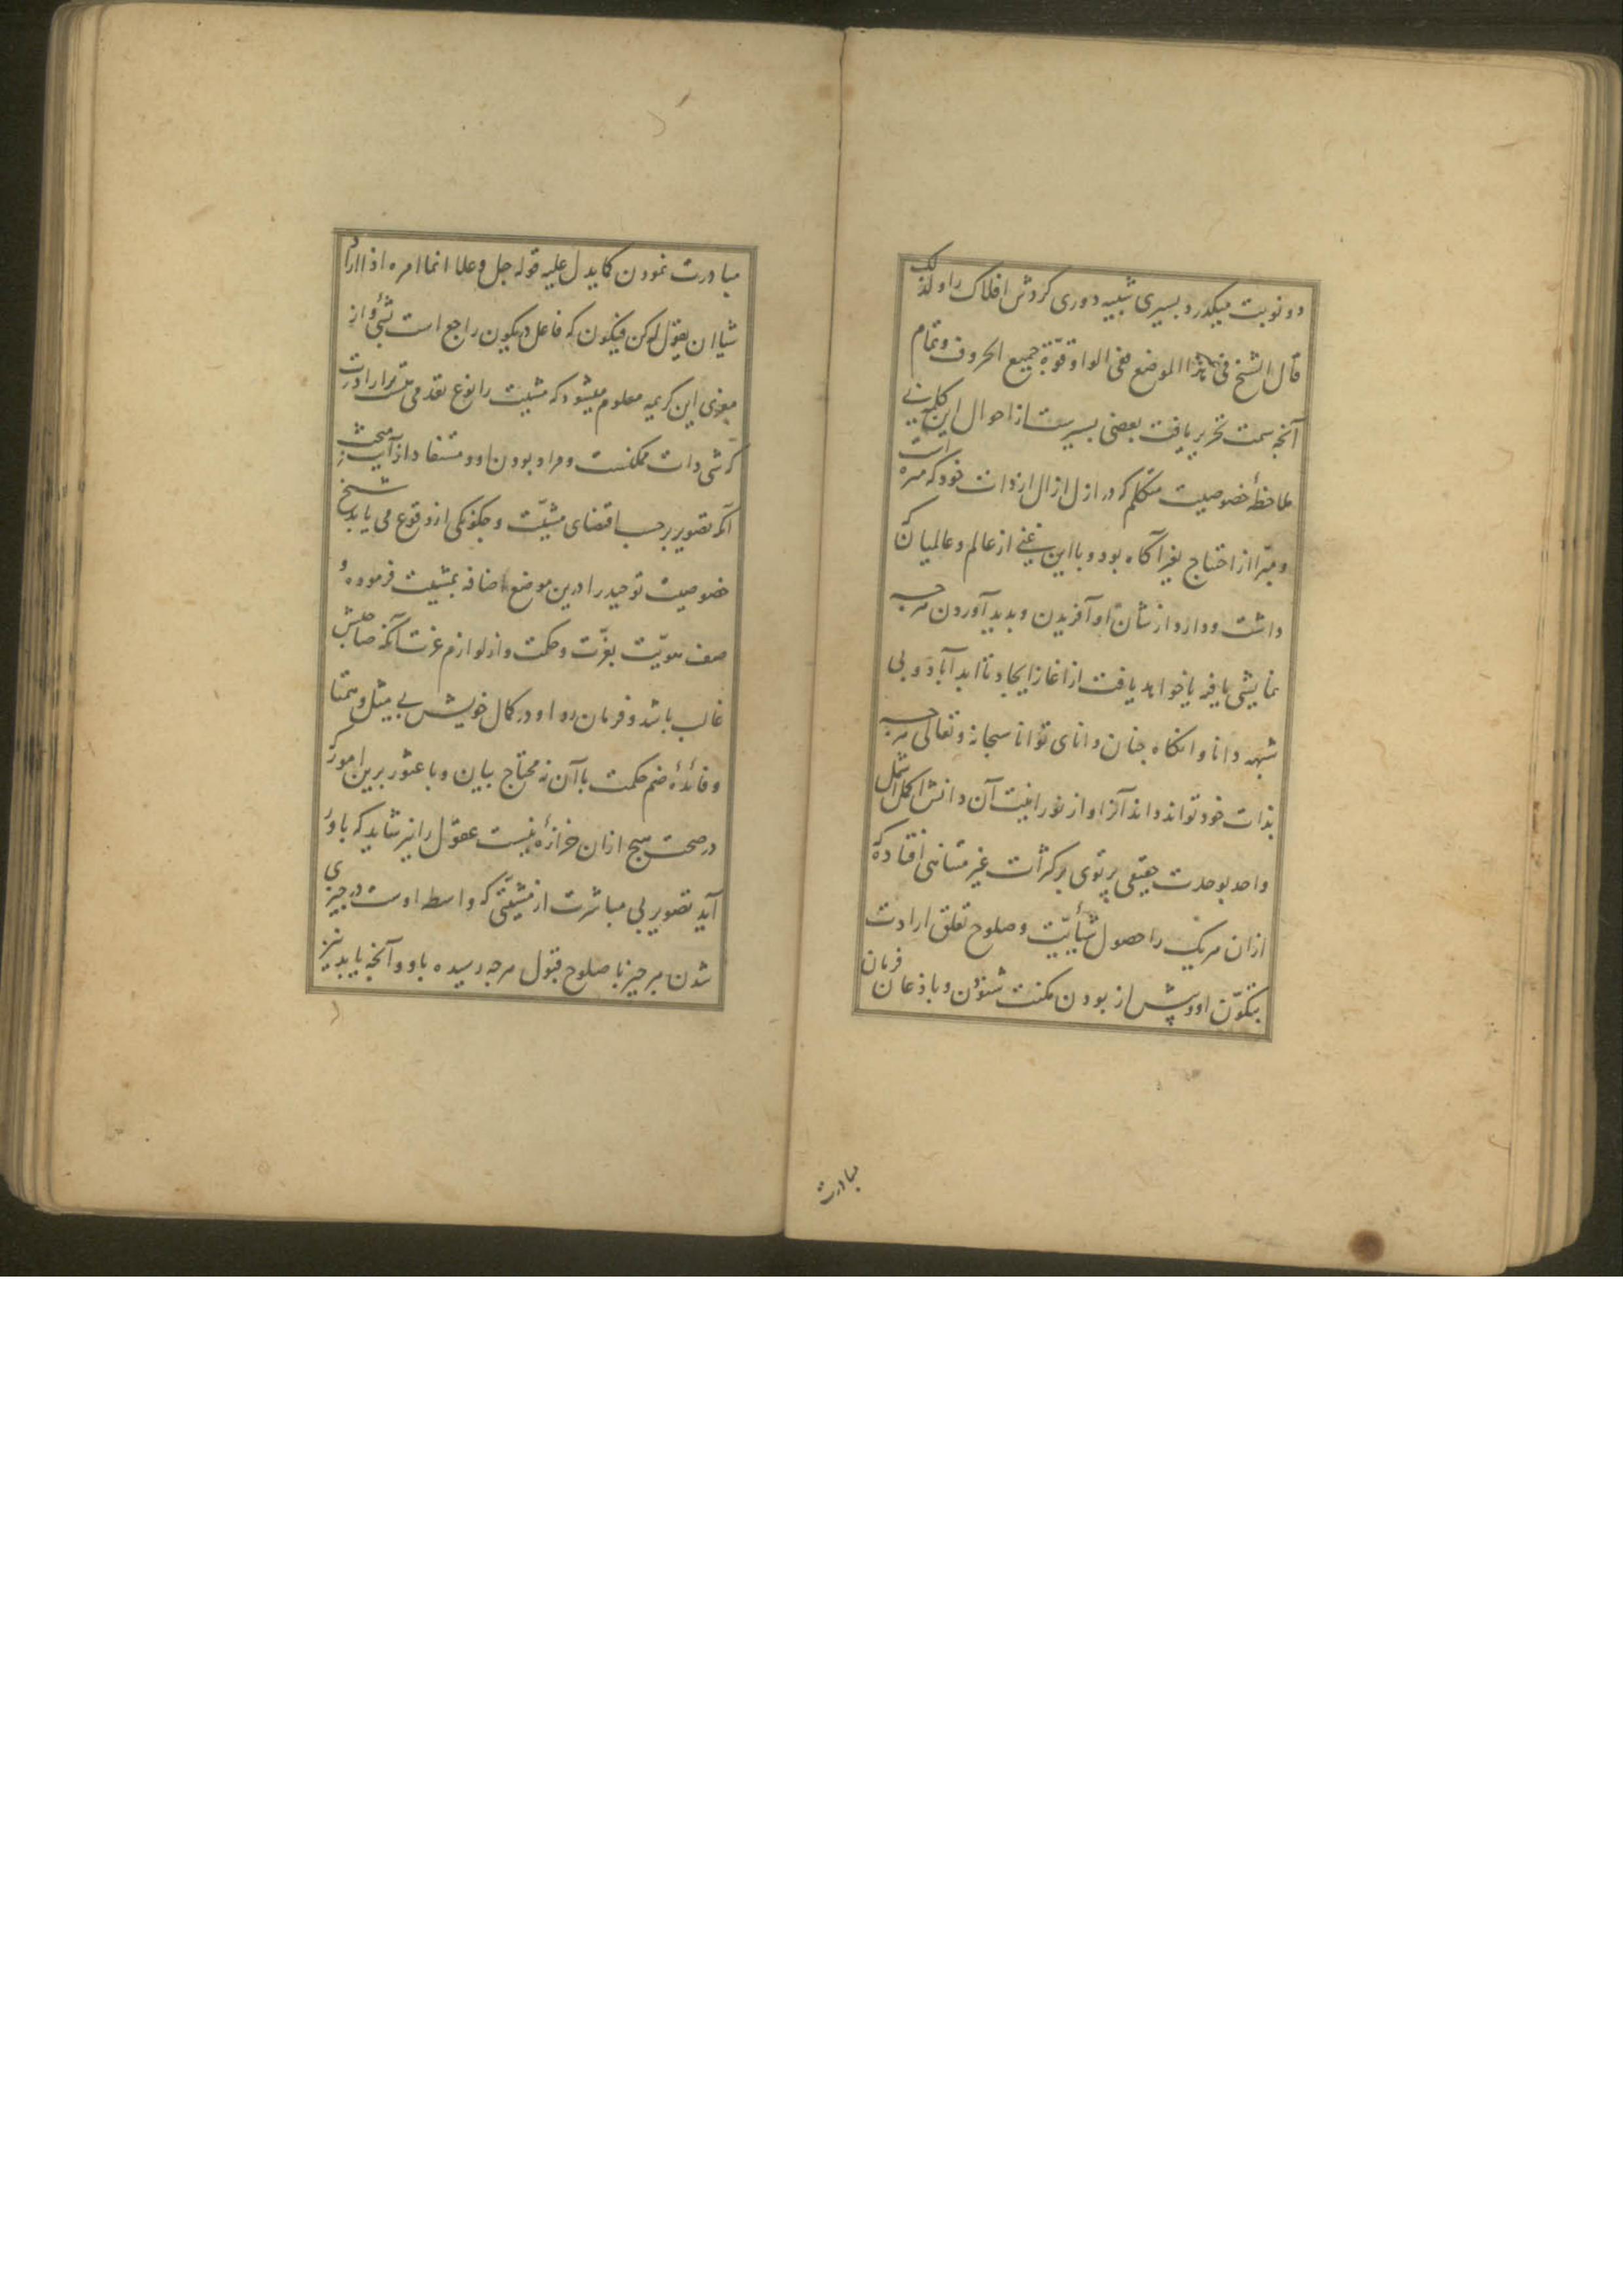 دو نوبت میکذرد بسیری شبیه دوری کردش افلاک را ولذلک
قال الشیخ فی هذا الموضع ففی الواو قوّة جمیع الحروف و تمام
آنچه سمت تحریر یافت بعضی یسیرست از احوال این کلمه
ملاحظهٔ خصوصیت متکلم که در ازل ازال از ذات خود که منزه
و مبرّا از احتیاج بغیر آکاه بود و با این غنی از عالم و عالمیان که
داشت و دارد از شان او آفریدن و پدید آوردن هرچه
نمایشی یافته یا خواهد یافت از اغاز ایجاد تا ابد آباد و بی
شبهه دانا وانکاه چنان دانای توانا سبحانه و تعالی هرچه
بذات خود تواند داند آنرا و از نورانیت آن دانش اکمل اشمل
واحد بوحدت حقیقی پرتوی بر کثرات غیر متناهی افتاده که
ازان هریک را حصول شیأیّت و صلوح تعلق ارادت
بتکوّن او و پیش از بودن مکنت شنودن و باذعان فرمان
مبادرت
مبادرت نمودن کما یدل علیه قوله جل و علا انما امره اذا اراد
شیا ان یقول له کن فیکون که فاعل یکون راجع است بشیٔ و از
مودی این کریمه معلوم میشود که مشیت را نوع تقدمی هست بر ارادت
که شی ذات ممکنست و مراد بودن او و مستفاد از آیت
آنکه تصویر بر حسب اقتضای مشیّت و چکونکی ازو وقوع می یابد
خصوصیت توحید را درین موضع اضافه بمشیت فرموده و
صف هویّت بعزّت و حکمت و از لوازم عزت آنکه صاحبش
غالب باشد و فرمان روا و در کمال خویش بی مثل و همتا
و فائدهٔ ضم حکمت با آن نه محتاج بیان و با عثور برین امور که
در صحت هیچ ازان خرازهٔ نیست عقول را نیز شاید که باور
آید تصویر بی مباشرت از مشیّتی که واسطه اوست در چیزی
شدن هر چیز با صلوح قبول هرچه رسیده باو و آنچه یابد نیز